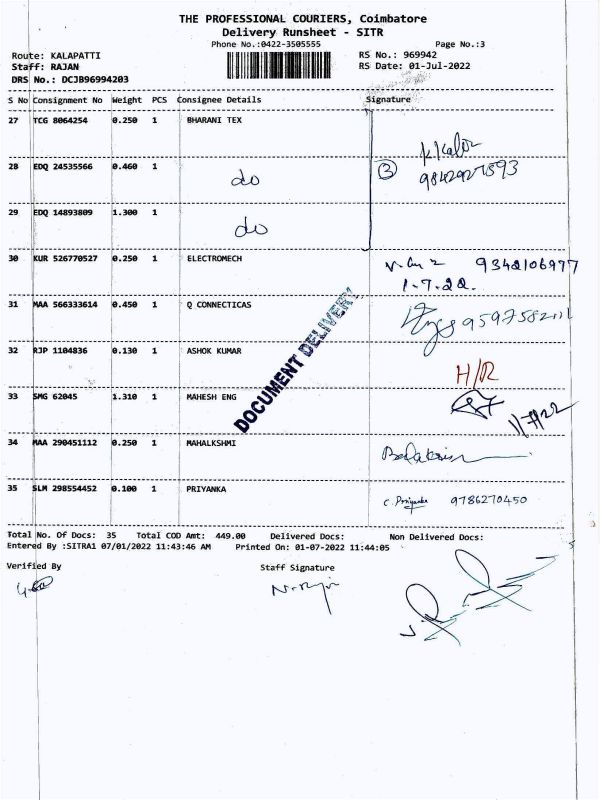 THE PROFESSIONAL COURIERS, Coimbatore
Delivery Runsheet - SITR
Phone No.:0422-3505555 Page No.:3
Route: KALAPATTI RS No.: 969942
Staff: RAJAN RS Date: 01-Jul-2022
DRS No.: DCJB96994203
S No Consignment No Weight PCS Consignee Details Signature
27 TCG 8064254 0.250 1 BHARANI TEX
28 EDQ 24535566 0.460 1 do 3
29 EDQ 14893809 1.300 1 do
30 KUR 526770527 0.250 1 ELECTROMECH 9342106977
1.7.22.
31 MAA 566333614 0.450 1 Q CONNECTICAS
32 RJP 1104836 0.130 1 ASHOK KUMAR
H/R
33 SMG 62045 1.310 1 MAHESH ENG
1/7/22
34 MAA 290451112 0.250 1 MAHALKSHMI
35 SLM 298554452 0.100 1 PRIYANKA C. Priyanka 9786270450
DOCUMENT DELIVERY
Total No. Of Docs: 35 Total COD Amt: 449.00 Delivered Docs: Non Delivered Docs:
Entered By :SITRA1 07/01/2022 11:43:46 AM Printed On: 01-07-2022 11:44:05
Verified By Staff Signature